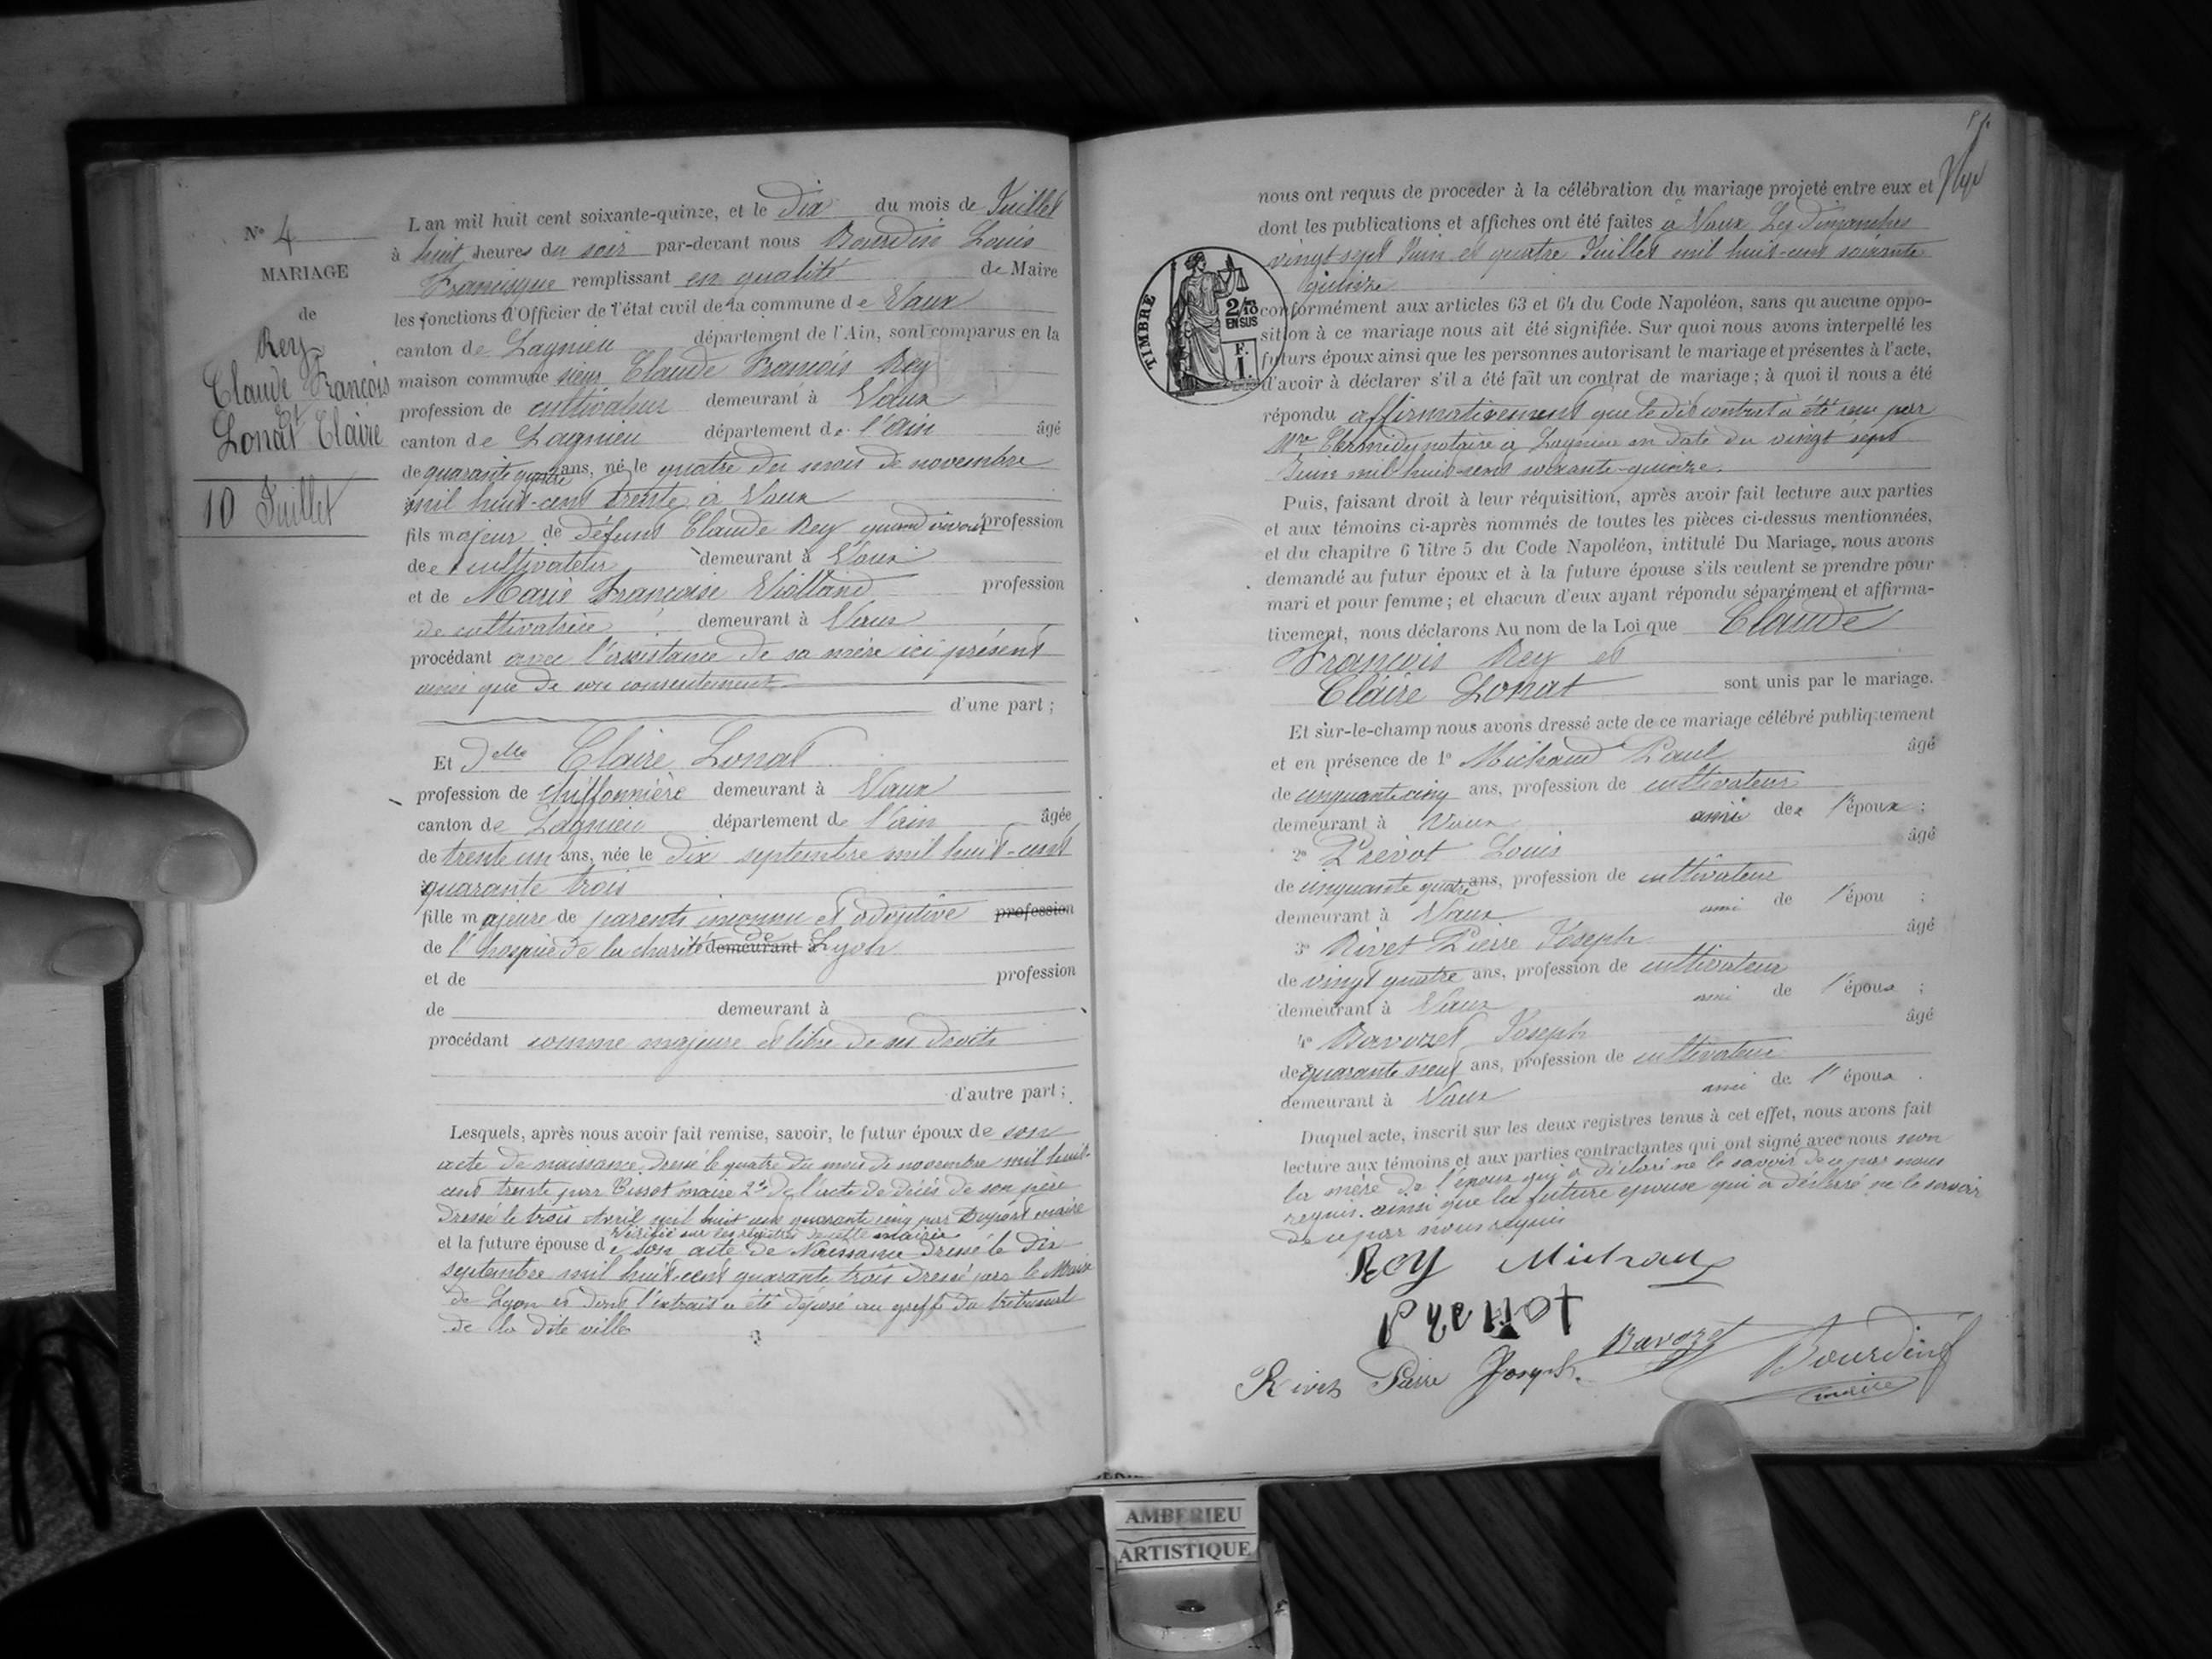 N° 4
MARIAGE
de
Rey
Claude François
Et
Lonat Claire
10 Juillet
L an mil huit cent soixante-quinze, et le dix du mois de Juillet
à huit heures du soir par-devant nous Bourdin Louis
Francisque remplissant en qualité de Maire
les fonctions d'Officier de l'état civil de la commune de Vaux
canton de Lagnieu département de l'Ain, sont comparus en la
maison commune sieur Claude François Rey
profession de cultivateur demeurant à Vaux
canton de Lagnieu département de l'ain âgé
de quarante quatre ans, né le quatre du mois de novembre
mil huit-cent trente à Vaux
fils majeur de défunt Claude Rey quand vivait profession
de cultivateur demeurant à Vaux
et de Marie Françoise Violland profession
de cultivatrice demeurant à Vaux
procédant avec l'assistance de sa mère ici présent
ainsi que de son consentement
d'une part ;
Et Delle Claire Lonat
profession de chiffonnière demeurant à Vaux
canton de Lagnieu département de l'ain âgée
de trente un ans, née le dix septembre mil huit-cent
quarante trois
fille majeure de parents inconnu et adoptive profession
de l'hospice de la charité demeurant à de Lyon
et de profession
de demeurant à
procédant comme majeure et libre de ses droits
d'autre part ;
Lesquels, après nous avoir fait remise, savoir, le futur époux de son
acte de naissance dressé le quatre du mois de novembre mil huit-
cent trente par maire 2° de l'acte de décès de son père
dressé le trois Avril mil huit cent quarante cinq par Dupont maire
vérifié sur les registres de cette mairie
et la future épouse de son acte de Naissance dressé le dix
septembre mil huit-cent quarante trois dressé par le Maire
de Lyon et dont l'extrait a été déposé au greffe du tribunal
de la dite ville
nous ont requis de proceder à la célébration du mariage projeté entre eux et
dont les publications et affiches ont été faites à Vaux Les dimanches
vingt-sept Juin et quatre Juillet mil huit-cent soixante
quinze
conformément aux articles 63 et 64 du Code Napoléon, sans qu aucune oppo-
sition à ce mariage nous ait été signifiée. Sur quoi nous avons interpellé les
futurs époux ainsi que les personnes autorisant le mariage et présentes à l'acte,
d'avoir à déclarer s'il a été fait un contrat de mariage ; à quoi il nous a été
répondu affirmativement que le dit contrat a été reçu par
Mre notaire à Lagnieu en date du vingt sept
Juin mil huit-cent soixante-quinze.
Puis, faisant droit à leur réquisition, après avoir fait lecture aux parties
et aux témoins ci-après nommés de toutes les pièces ci-dessus mentionnées,
et du chapitre 6 titre 5 du Code Napoléon, intitulé Du Mariage, nous avons
demandé au futur époux et à la future épouse s'ils veulent se prendre pour
mari et pour femme ; et chacun d'eux ayant répondu séparément et affirma-
tivement, nous déclarons Au nom de la Loi que Claude
François Rey et
Claire Lonat sont unis par le mariage.
Et sur-le-champ nous avons dressé acte de ce mariage célébré publiquement
et en présence de 1° Michaud Paul âgé
de cinquante cinq ans, profession de cultivateur
demeurant à Vaux ami de l'époux ;
2° Prevot Louis âgé
de cinquante quatre ans, profession de cultivateur
demeurant à Vaux ami de l'épou ;
3° Rivet Pierre Joseph âgé
de vingt quatre ans, profession de cultivateur
demeurant à Vaux ami de l'époux ;
4° Ravozet Joseph âgé
de quarante neuf ans, profession de cultivateur
demeurant à Vaux ami de l'époux .
Duquel acte, inscrit sur les deux registres tenus à cet effet, nous avons fait
lecture aux témoins et aux parties contractantes qui ont signé avec nous non
la mère de l'époux qui a déclaré ne le savoir de ce par nous
requis. ainsi que la future épouse qui a déclaré ne le savoir
de ce par nous requis
Rey Michaud
Prevot
Ravozet
Rivet Pierre Joseph.
Bourdin
maire
TIMBRE
2/10
EN SUS
F.
1.
AMBERIEU
ARTISTIQUE